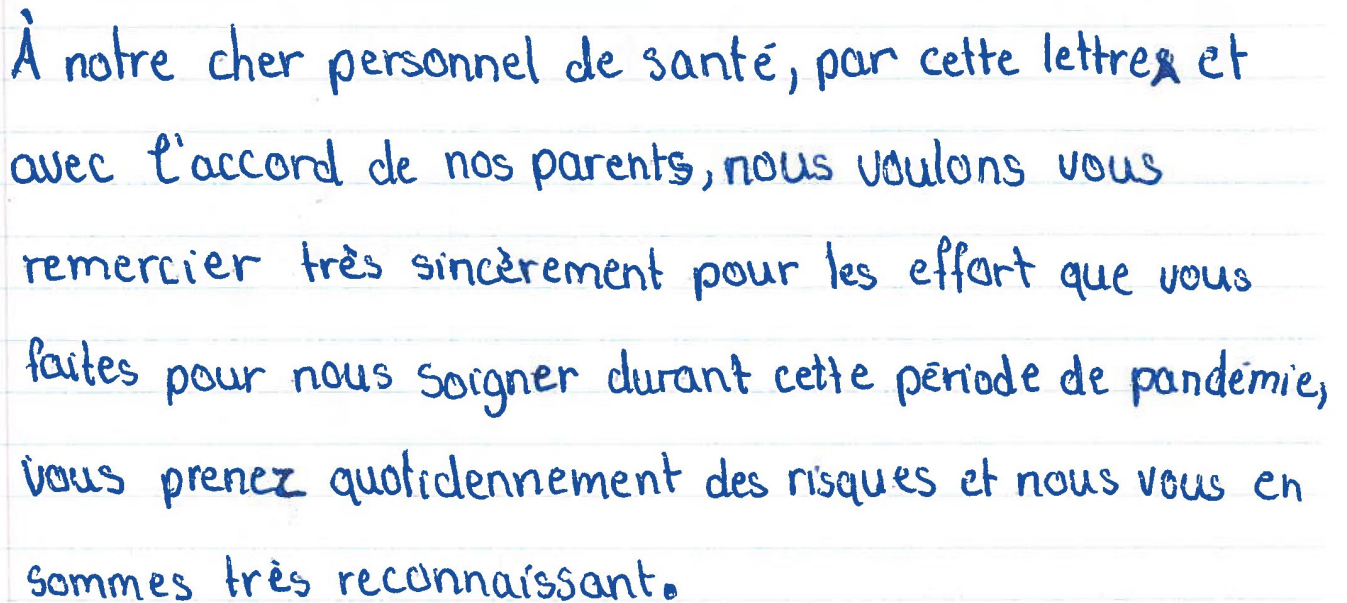 À notre cher personnel de santé, par cette lettre et
avec l'accord de nos parents, nous voulons vous
remercier très sincèrement pour les effort que vous
faites pour nous soigner durant cette période de pandémie,
vous prenez quotidennement des risques et nous vous en
sommes très reconnaissant.